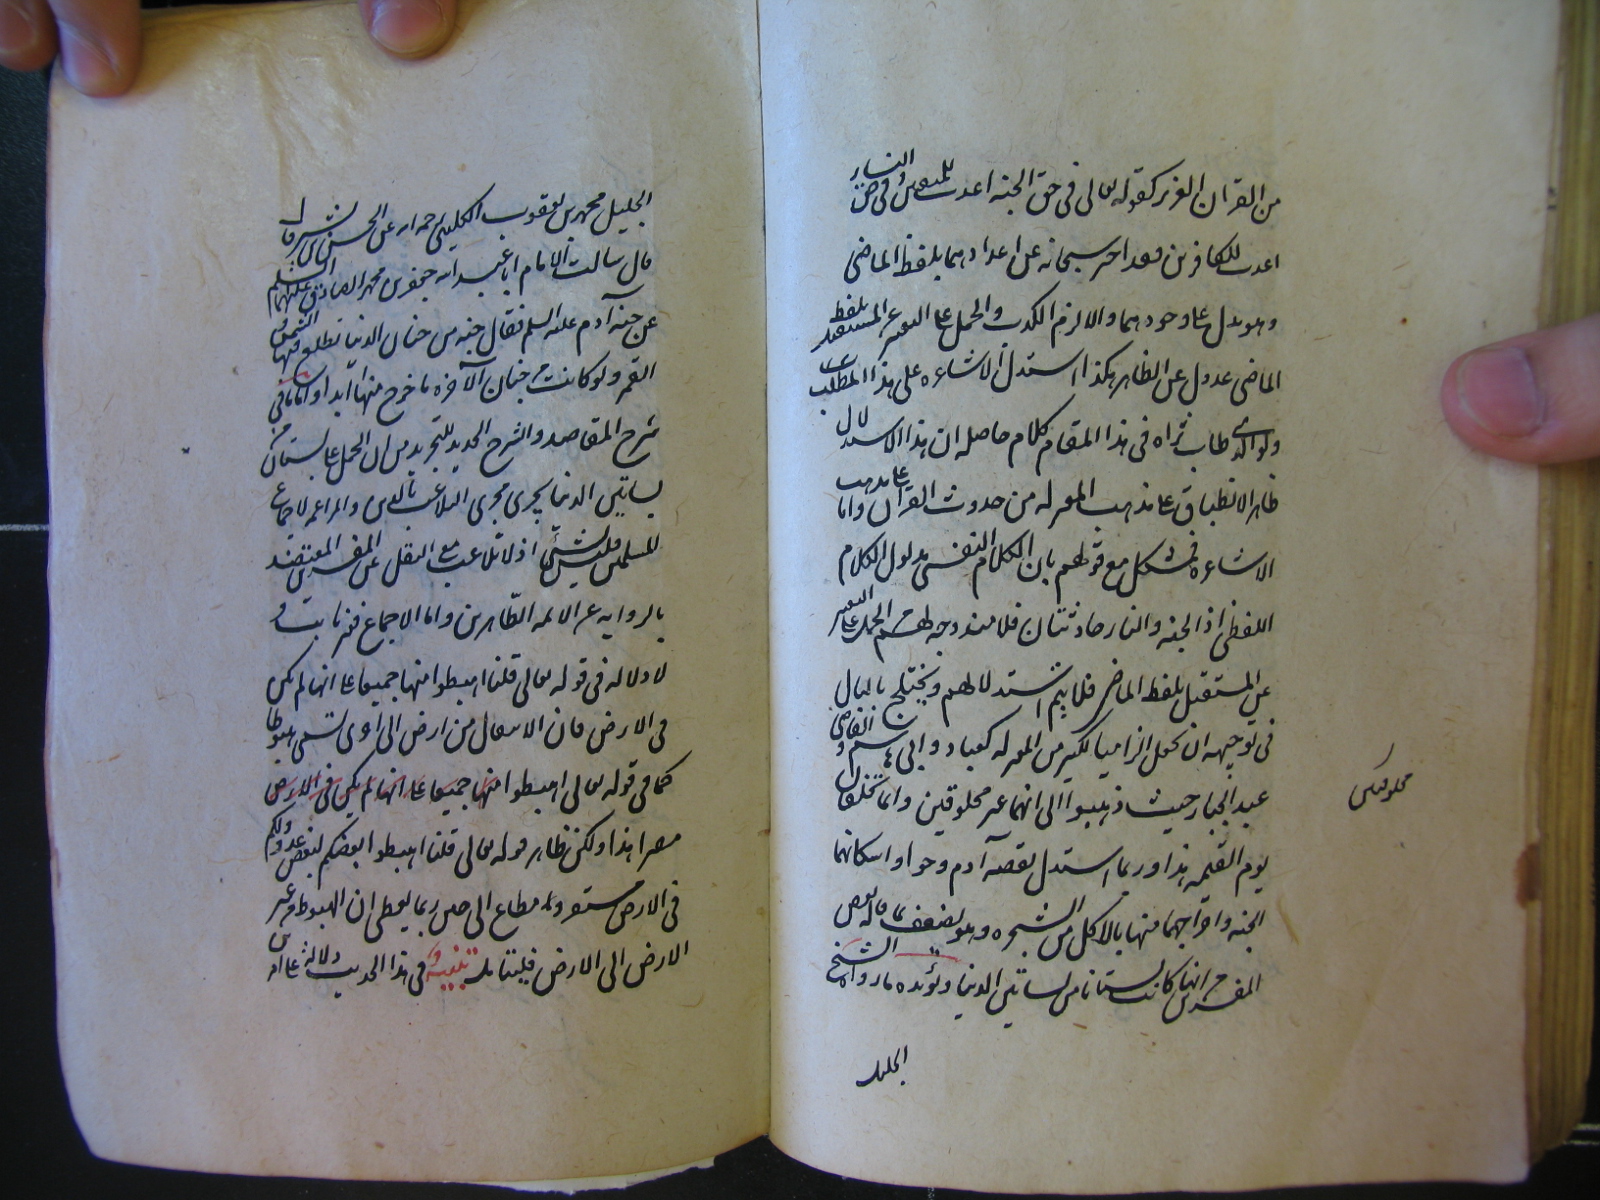 من القرآن العزيز كقوله تعالى فى حق الجنه اعدت للمتقين وفى حق النار
اعدت للكافرين فقد اخبر سبحانه عن اعدادهما بلفظ الماضى
وهو يدل على وجودهما والا لزم الكذب والحمل على التعبير عن المستقبل بلفظ
الماضى عدول عن الظاهر هكذا استدل الاشاعره على هذا المطلب
ولوالدى طاب ثراه فى هذا المقام كلام حاصله ان هذا الاستدلال
ظاهر الانطباق على مذهب المعتزله من حدوث القرآن واما على مذهب
الاشاعره فمشكل مع قولهم بان الكلام النفسى مدلول الكلام
اللفظى اذ الجنه والنار حادثتان فلا مندوحه لهم عن الحمل على التعبير
عن المستقبل بلفظ الماضى فلا يتم استدلالهم ويختلج بالبال
فى توجيهه ان يجعل الزاميا لكثير من المعتزله كعباد وابى هاشم والقاضى
عبد الجبار حيث ذهبوا الى انهما غير مخلوقين وانما تخلقان
يوم القيمه هذا وربما استدل بقصه آدم وحوا واسكانهما
الجنه واخراجهما منها بالاكل من الشجره وهو يضعف بما قاله بعض
المفسرين انها كانت بستانا من بساتين الدنيا ويؤيده ما رواه الشيخ
الجليل
مخلوقتين
الجليل محمد بن يعقوب الكلينى رحمه الله عن الحسن بن بشير قال
قال سالت الامام ابا عبد الله جعفر بن محمد الصادق عليهما السلم
عن جنه آدم عليه السلم فقال جنه من جنان الدنيا تطلع فيها الشمس و
القمر ولو كانت من جنان الآخره ما خرج منها ابدا واما ما فى
شرح المقاصد والشرح الجديد للتجريد من ان الحمل على بستان من
بساتين الدنيا يجرى مجرى التلاعب بالدين والمراغمه لاجماع
المسلمين فليس بشئ اذ لا تلاعب مع النقل عن المفسرين المعتضد
بالروايه عن الائمه الطاهرين واما الاجماع فغير ثابت و
لا دلاله فى قوله تعالى قلنا اهبطوا منها جميعا على انها لم يكن
فى الارض فان الانتقال من ارض الى اخرى تسمى هبوطا
كما فى قوله تعالى اهبطوا منها جميعا على انها لم يكن فى الارض
مصرا هذا ولكن ظاهر قوله تعالى قلنا اهبطوا بعضكم لبعض عدو ولكم
فى الارض مستقر ومتاع الى حين ربما يعطى ان الهبوط من غير
الارض الى الارض فليتامل تنبيه وفى هذا الحديث دلاله على ان